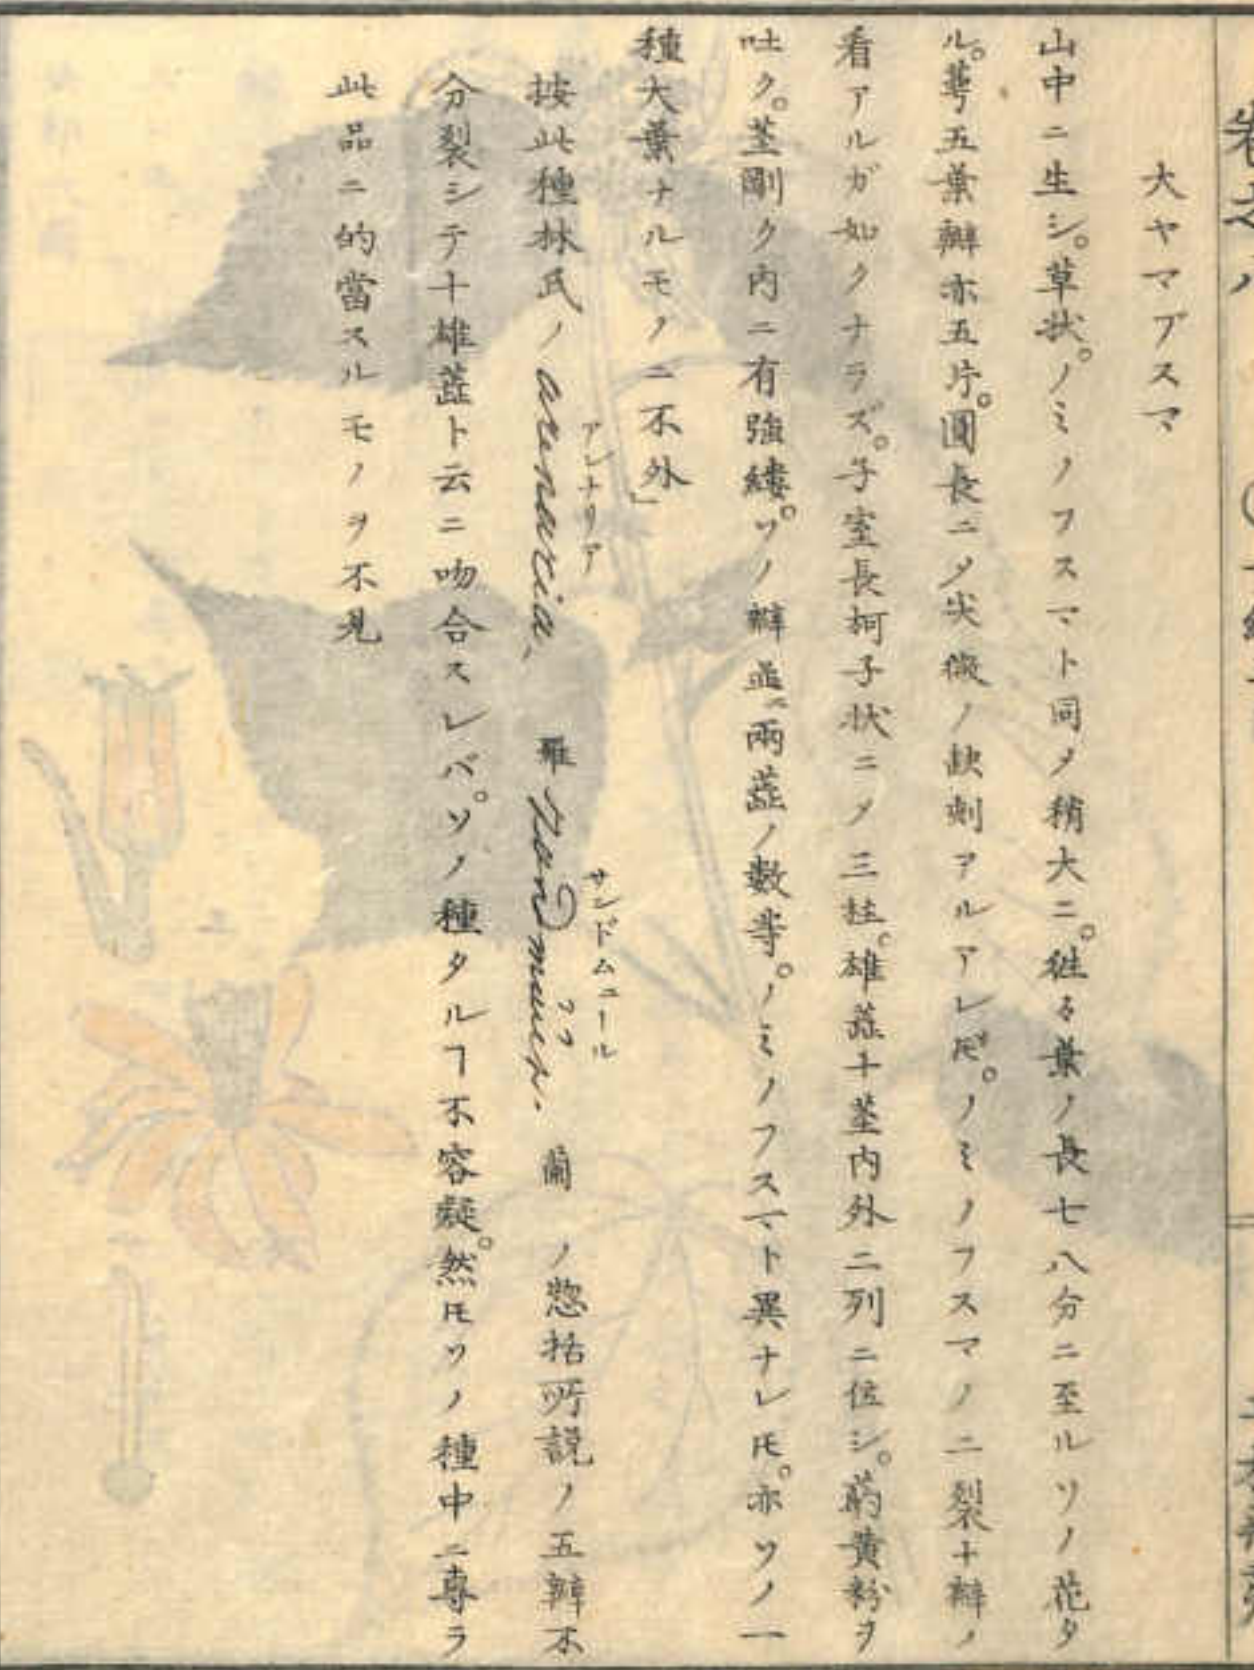 大ヤマブスマ
山中ニ生シ。草状。ノミノフスマト同〆稍大ニ。徃々葉ノ長七八分ニ至ルソノ花タ
ル。萼五葉瓣亦五片。圓長ニ〆尖微ノ缺刻アルアレ𪜈。ノミノフスマノ二裂十瓣ノ
看アルガ如クナラズ。子室長柯子状ニ〆三柱。雄蕋十莖内外二列ニ位シ。葯黄粉ヲ
吐ク。莖剛ク内ニ有強縷。ソノ瓣並ニ兩蕋ノ數等。ノミノフスマト異ナレ𪜈。亦ソノ一
種大葉ナルモノニ不外」
按此種林氏ノarenaria, アレナリア 羅 sandmuur. サンドムニール 蘭ノ惣括所説ノ五瓣不
分裂シテ十雄蕋ト云ニ吻合スレバ。ソノ種タルヿ不容疑。然𪜈ソノ種中ニ専ラ
此品ニ的當スルモノヲ不見